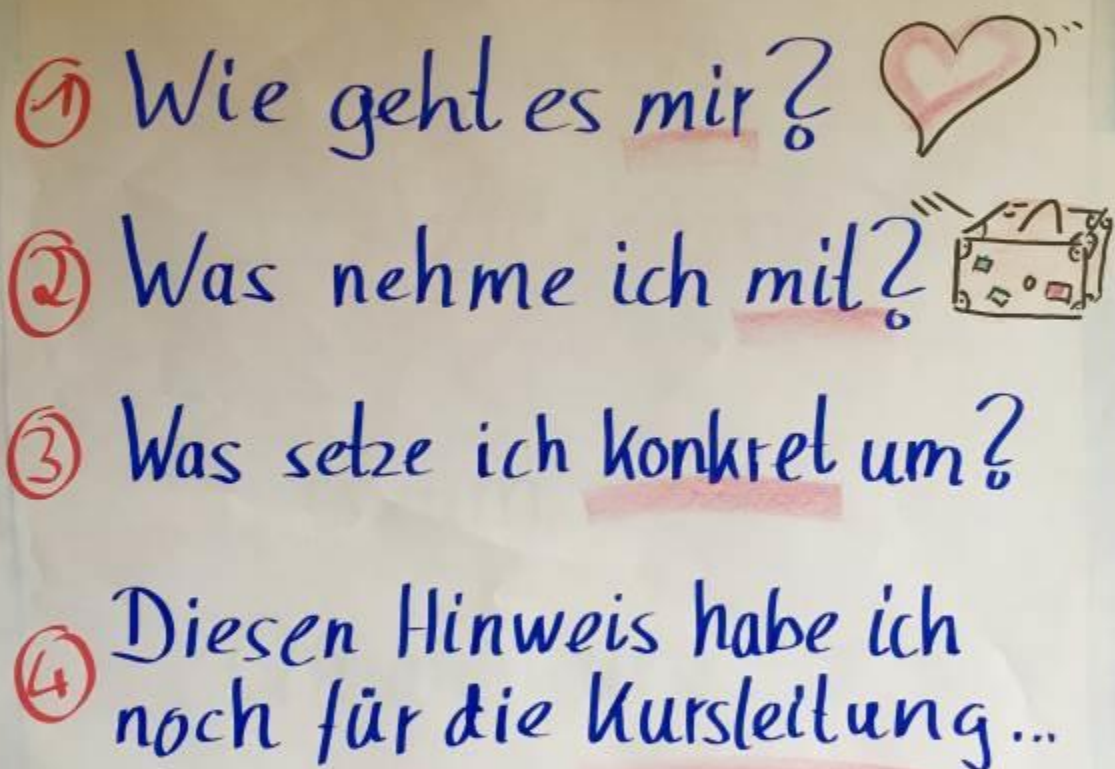 ① Wie geht es mir?
② Was nehme ich mit?
③ Was setze ich konkret um?
④ Diesen Hinweis habe ich
noch für die Kursleitung...